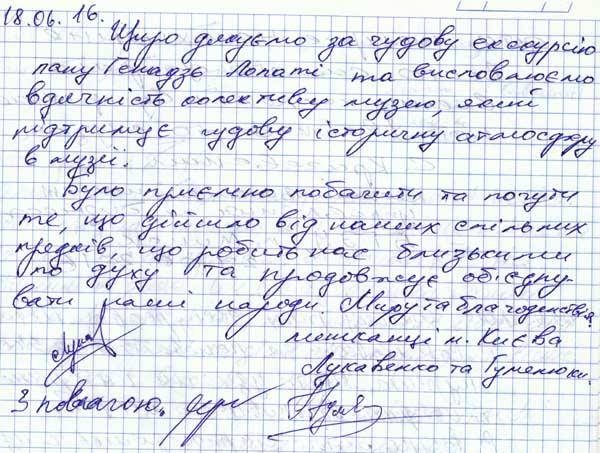 18.06.16.
Щиро дякуємо за чудову екскурсію
пану Генадзь Лопаті та висловлюємо
вдячність колективу музею, який
підтримує чудову історичну атмосферу
в музеї.
Було приємно побачити та почути
те, що дійшло від наших спільних
предків, що робить нас близькими
по духу та продовжує об'єдну-
вати наші народи. Миру та благоденствія.
мешканці м. Києва
Лукавенко та Гуменюки.
З повагою,